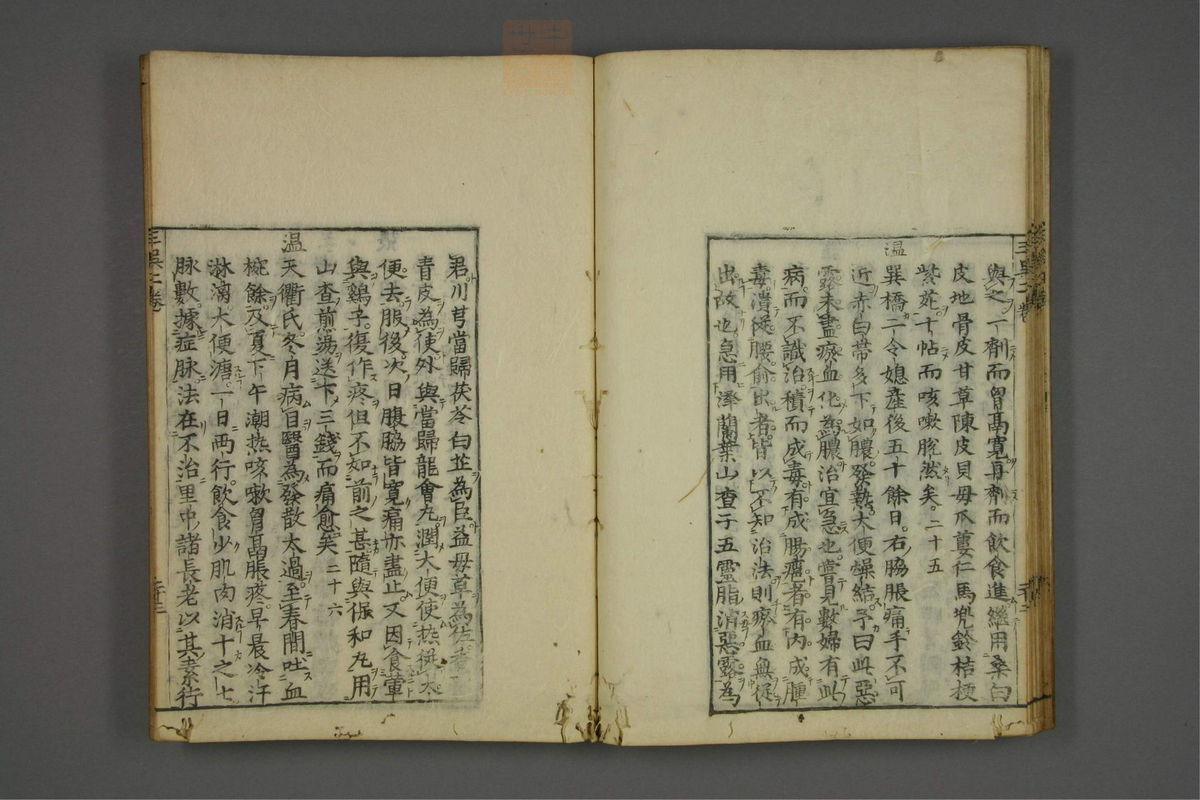 與之一劑而胃鬲寬再劑而飲食進繼用桑白
皮地骨皮甘草陳皮貝母瓜蔞仁馬兜鈴桔梗
紫菀十帖而咳嗽脫然矣二十五
溫巽橋二令媳產後五十餘日右脇脹痛手不可
近赤白帶多下如膿發熱大便燥結予曰此惡
露未盡瘀血化為膿治宜急也嘗見數婦有此
病而不識治積而成毒有成腸癰者有內成腫
毒潰從腰俞出者皆以不知治法則瘀血無從
出故也急用澤蘭葉山查子五靈脂消惡露為
君川芎當歸茯苓白芷為臣益母草為佐
青皮為使外與當歸龍會丸潤大便使熱從大
便去服後次日腹脇皆寬痛亦盡止又因食葷
與鷄子復作疼但不如前之甚隨與保和丸用
山查煎湯送下三錢而痛愈矣二十六
溫天衢氏冬月病目醫為發散太過至春間吐血
椀餘及夏下午潮熱咳嗽胃鬲脹疼早晨冷汗
淋漓大便溏一日兩行飲食少肌肉消十之七
脉數據症脉法在不治里中諸長老以其素行
三吳二卷
三吳二卷